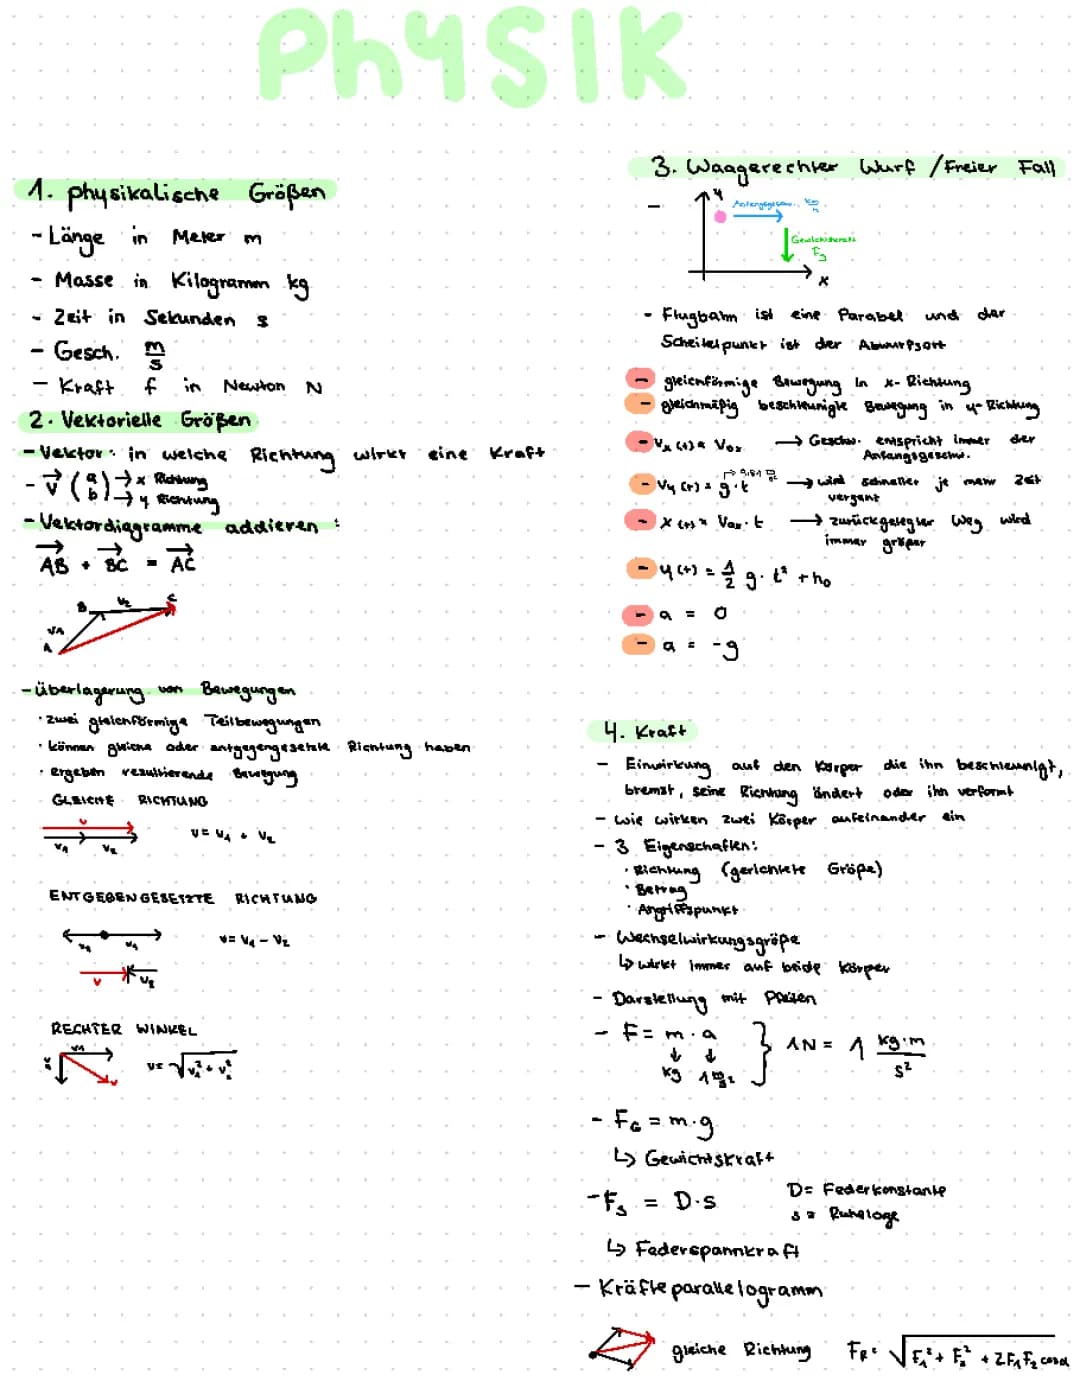 PhYSIK
1. physikalische Größen
- Länge in Meter m
- Masse in Kilogramm kg
- Zeit in Sekunden s
- Gesch. m/s
- Kraft f in Newton N
2. Vektorielle Größen
- Vektor: in welche Richtung wirkt eine Kraft
- v⃗ (a b) → x Richtung → y Richtung
- Vektordiagramme addieren:
AB + BC = AC
B v₂ C
v₁
A
- Überlagerung von Bewegungen
· zwei gleichförmige Teilbewegungen
· können gleiche oder entgegengesetzte Richtung haben
· ergeben resultierende Bewegung
GLEICHE RICHTUNG
v
v₁ v₂
v = v₁ + v₂
ENTGEGENGESETZTE RICHTUNG
v₂ v₁
v = v₁ - v₂
v v₂
RECHTER WINKEL
v₁
v₂ v
v = √v₁² + v₂²
3. Waagerechter Wurf / Freier Fall
- y
Anfangsgeschw. km/h
Gewichtskraft
Fg
x
- Flugbahn ist eine Parabel und der
Scheitelpunkt ist der Abwurfsort
- gleichförmige Bewegung in x-Richtung
- gleichmäßig beschleunigte Bewegung in y-Richtung
- Vx(t) = Vox → Geschw. entspricht immer der
Anfangsgeschw.
→ 9,81 m/s²
- Vy(t) = g·t → wird schneller je mehr Zeit
vergeht
- x(t) = Vox·t → zurückgelegter Weg wird
immer größer
- y(t) = 1/2 g·t² + h₀
- a = 0
- a = -g
4. Kraft
- Einwirkung auf den Körper die ihn beschleunigt,
bremst, seine Richtung ändert oder ihn verformt
- wie wirken zwei Körper aufeinander ein
- 3 Eigenschaften:
· Richtung (gerichtete Größe)
· Betrag
· Angriffspunkt
- Wechselwirkungsgröße
↳ wirkt immer auf beide Körper
- Darstellung mit Pfeilen
- F = m · a } 1N = 1 kg·m/s²
↓ ↓
kg 1 m/s²
- FG = m·g
↳ Gewichtskraft
- Fs = D·s D = Federkonstante
s = Ruhelage
↳ Federspannkraft
- Kräfteparallelogramm
gleiche Richtung FR = √F₁² + F₂² + 2F₁F₂ cosα